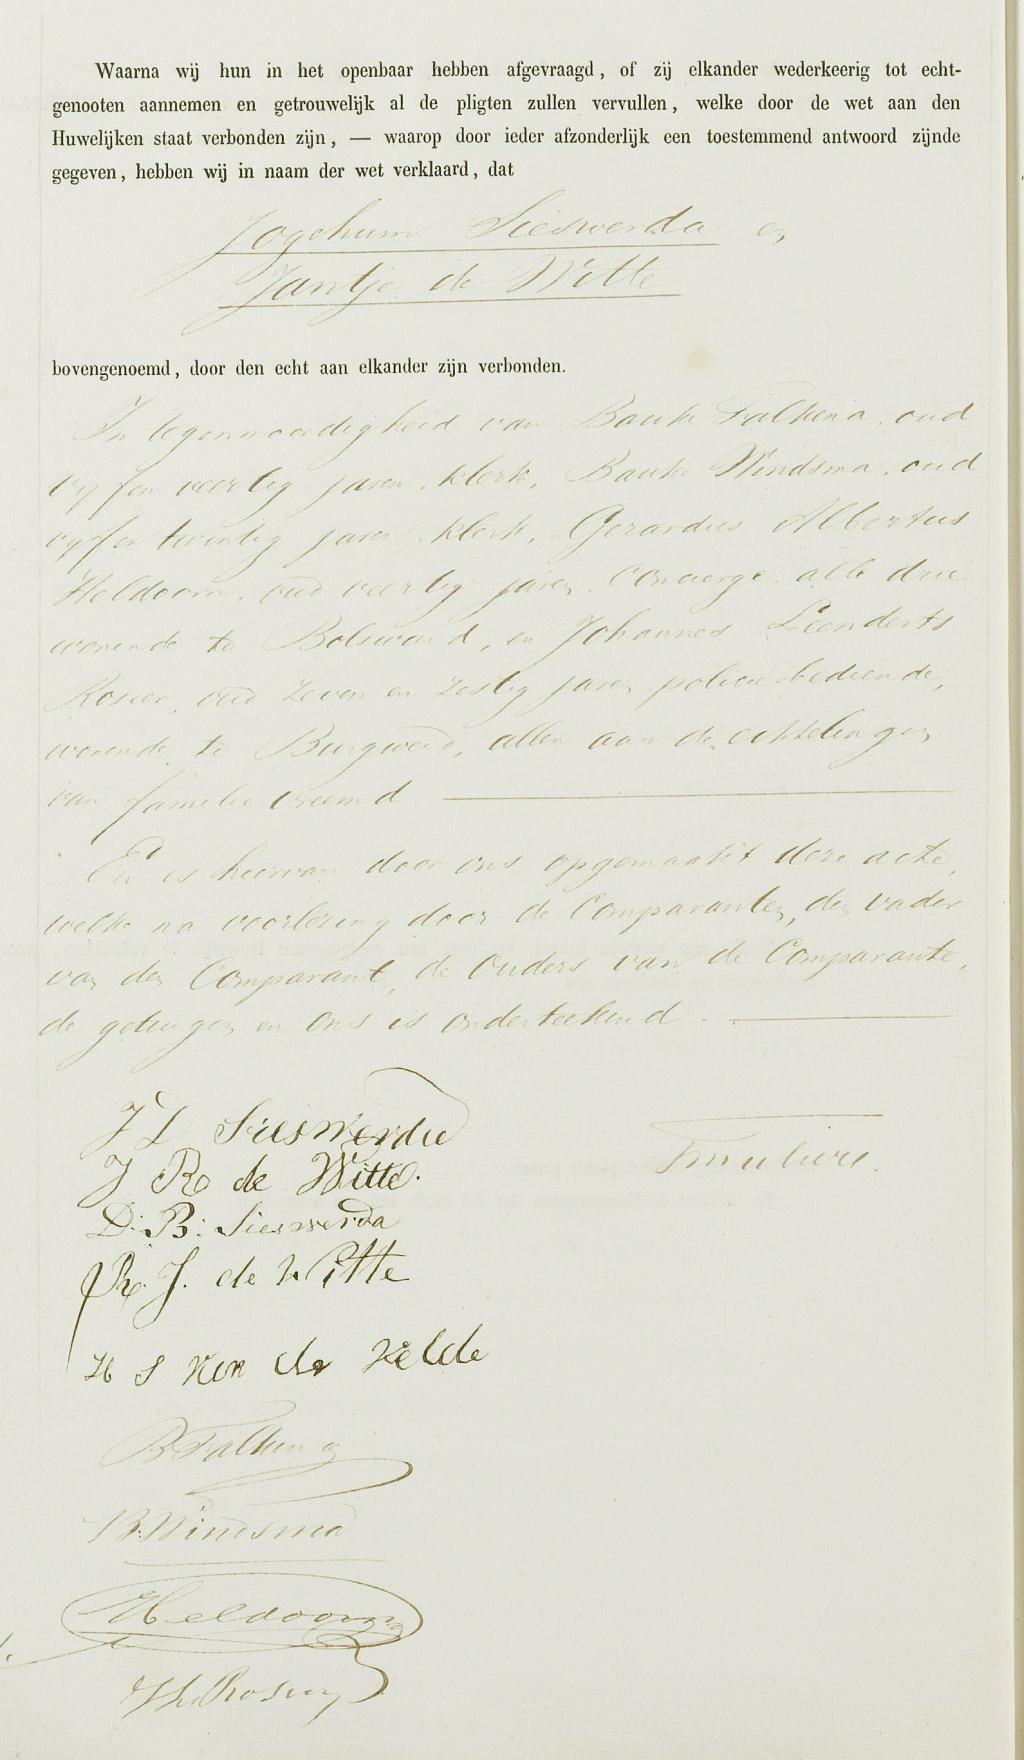 Waarna wij hun in het openbaar hebben afgevraagd, of zij elkander wederkeerig tot echt-
genooten aannemen en getrouwelijk al de pligten zullen vervullen, welke door de wet aan den
Huwelijken staat verbonden zijn, — waarop door ieder afzonderlijk een toestemmend antwoord zijnde
gegeven, hebben wij in naam der wet verklaard, dat
Jogchum Sieswerda en
Jantje de Witte
bovengenoemd, door den echt aan elkander zijn verbonden.
In tegenwoordigheid van Bauke Falkena, oud
vijf en veertig jaren, klerk, Bauke Windsma, oud
vijf en twintig jaren, klerk, Gerardus Albertus
Heldoorn, oud veertig jaren, Concierge, alle drie
wonende te Bolsward, en Johannes Leenderts
Rosier, oud zeven en zestig jaren, policiebediende,
wonende te Burgwerd, allen aan de echtelingen
van familie vreemd.
En is hiervan door ons opgemaakt deze acte,
welke na voorlezing door de Comparanten, den vader
van den Comparant, de Ouders van de Comparante,
de getuigen en Ons is onderteekend.
J L Sieswerda
J R de Witte.
D. B. Sieswerda
R. J. de Witte
H S Van der Velde
B Falkena
B. Windsma
Heldoorn